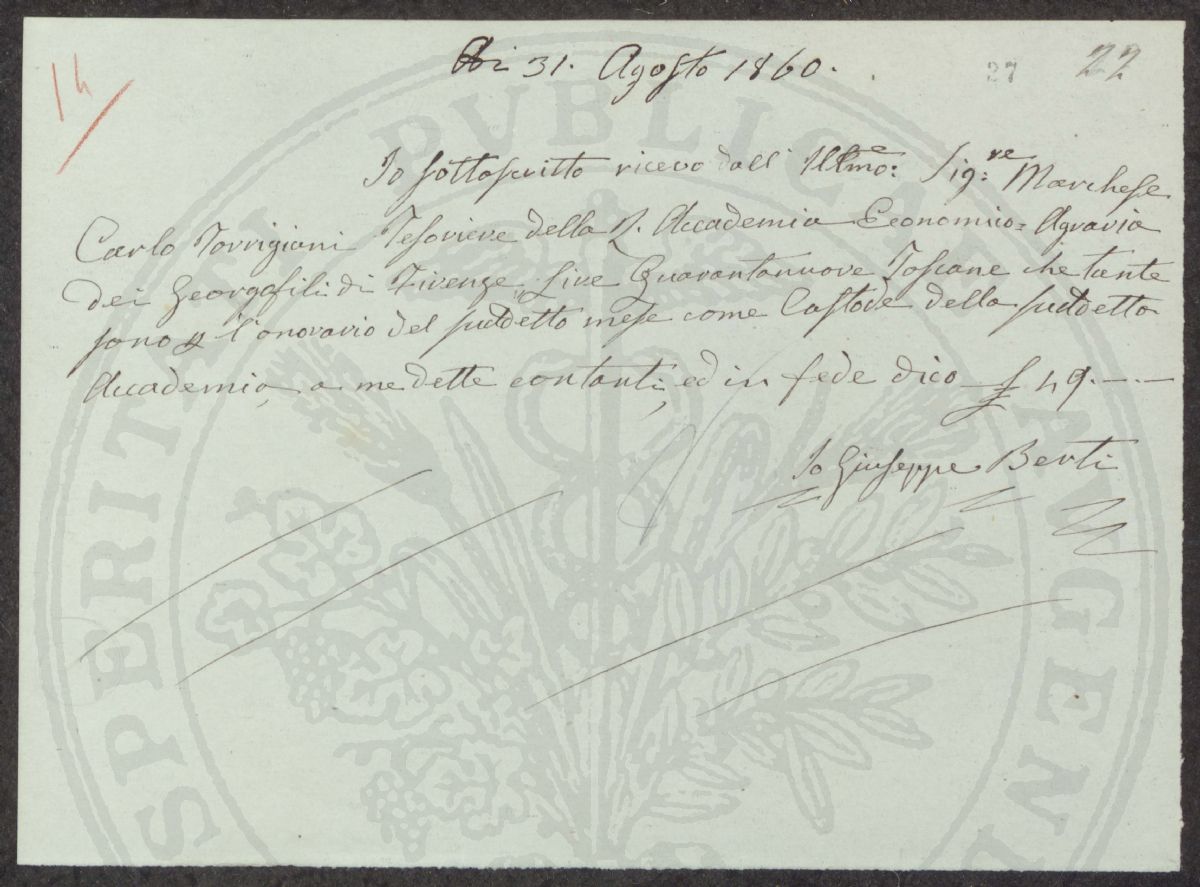 14
Adi 31. Agosto 1860.
27
22
Io sottoscritto ricevo dall' Illmo: Sig:re Marchese
Carlo Torrigiani Tesoriere della R. Accademia Economico=Agraria
dei Georgofili di Firenze, Lire Quarantanuove Toscane che tante
sono p l'onorario del suddetto mese come Custode della suddetta
Accademia, a me dette contanti, ed in fede dico £ 49.--
Io Giuseppe Berti
SPERITATI PUBLICAE AUGEN